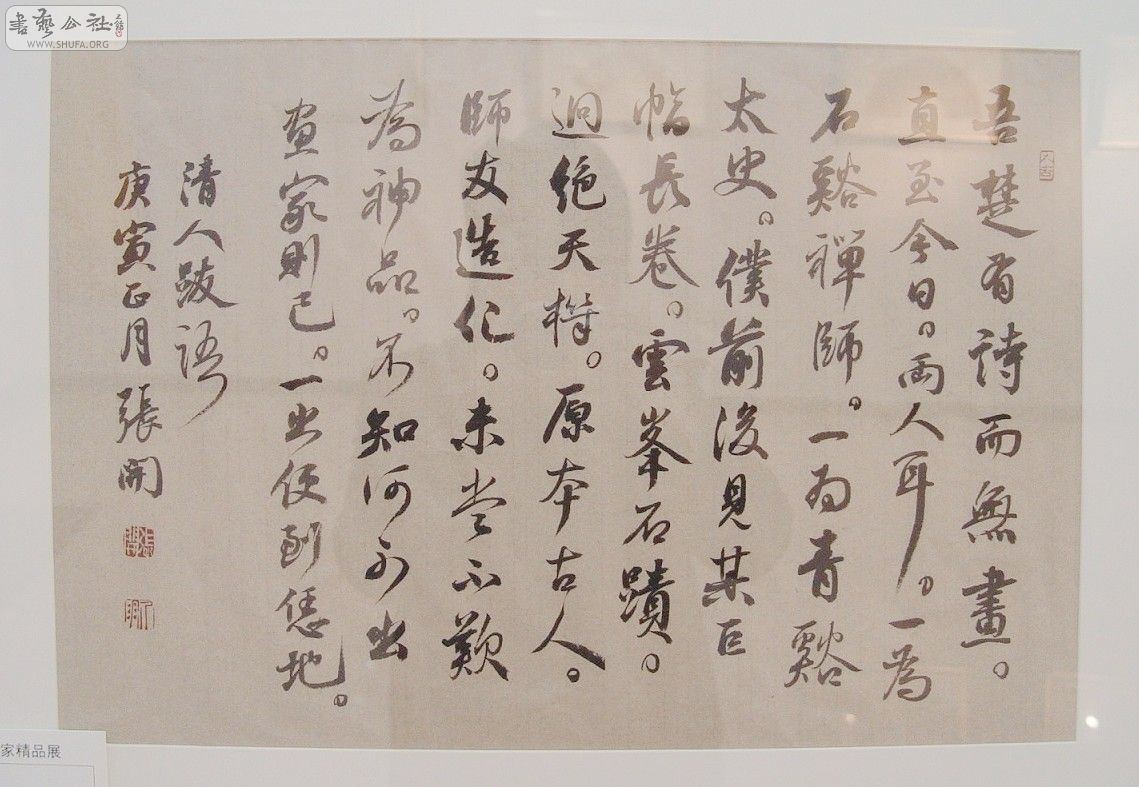 吾楚有詩而無畫。
直至今日。兩人耳。一為
石谿禪師。一為青谿
太史。僕前後見其巨
幅長卷。雲峯石蹟。
迥絶天機。原本古人。
師友造化。未嘗不歎
為神品。不知何以出
畫家則已。一出便到恁地。
清人跋語
庚寅正月張開
書藝公社
WWW.SHUFA.ORG
家精品展